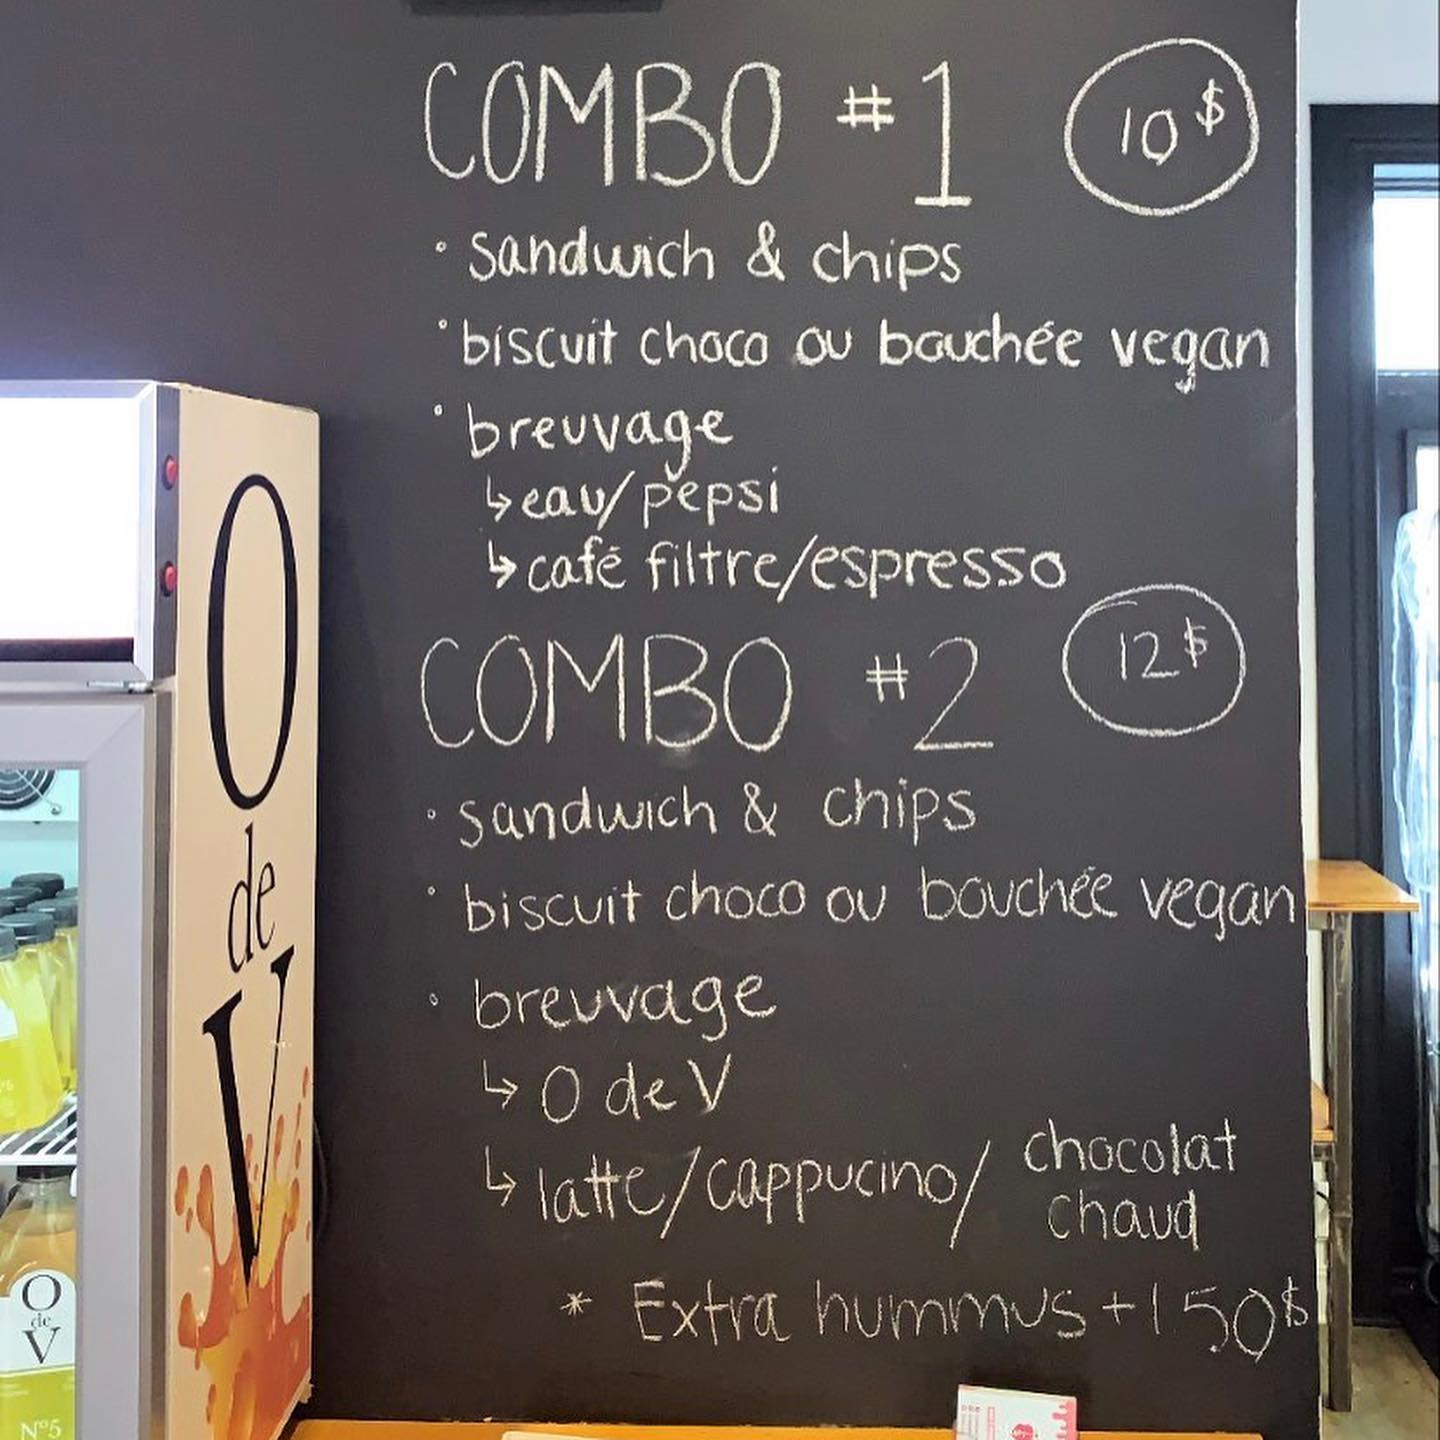 COMBO #1 10$
• sandwich & chips
• biscuit choco ou bouchée vegan
• breuvage
↳ eau/pepsi
↳ café filtre/espresso
COMBO #2 12$
• sandwich & chips
• biscuit choco ou bouchée vegan
• breuvage
↳ O de V
↳ latte/cappucino/ chocolat
chaud
* Extra hummus + 1.50$
O
de
V
O
de
V
Nº5